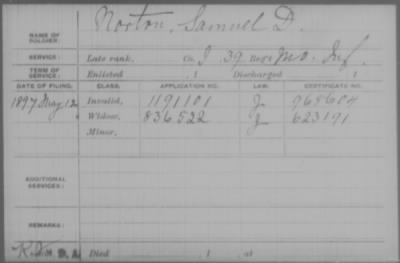 Norton, Samuel D.
NAME OF SOLDIER:
SERVICE: Late rank, Co. I 39 Reg't Mo. Inf.
TERM OF SERVICE: Enlisted , 1 Discharged , 1
DATE OF FILING. CLASS. APPLICATION NO. LAW. CERTIFICATE NO.
1897 May 12 Invalid, 1191101 J 968604
Widow, 836522 J 623191
Minor,
ADDITIONAL SERVICES:
REMARKS:
Died , 1 , at